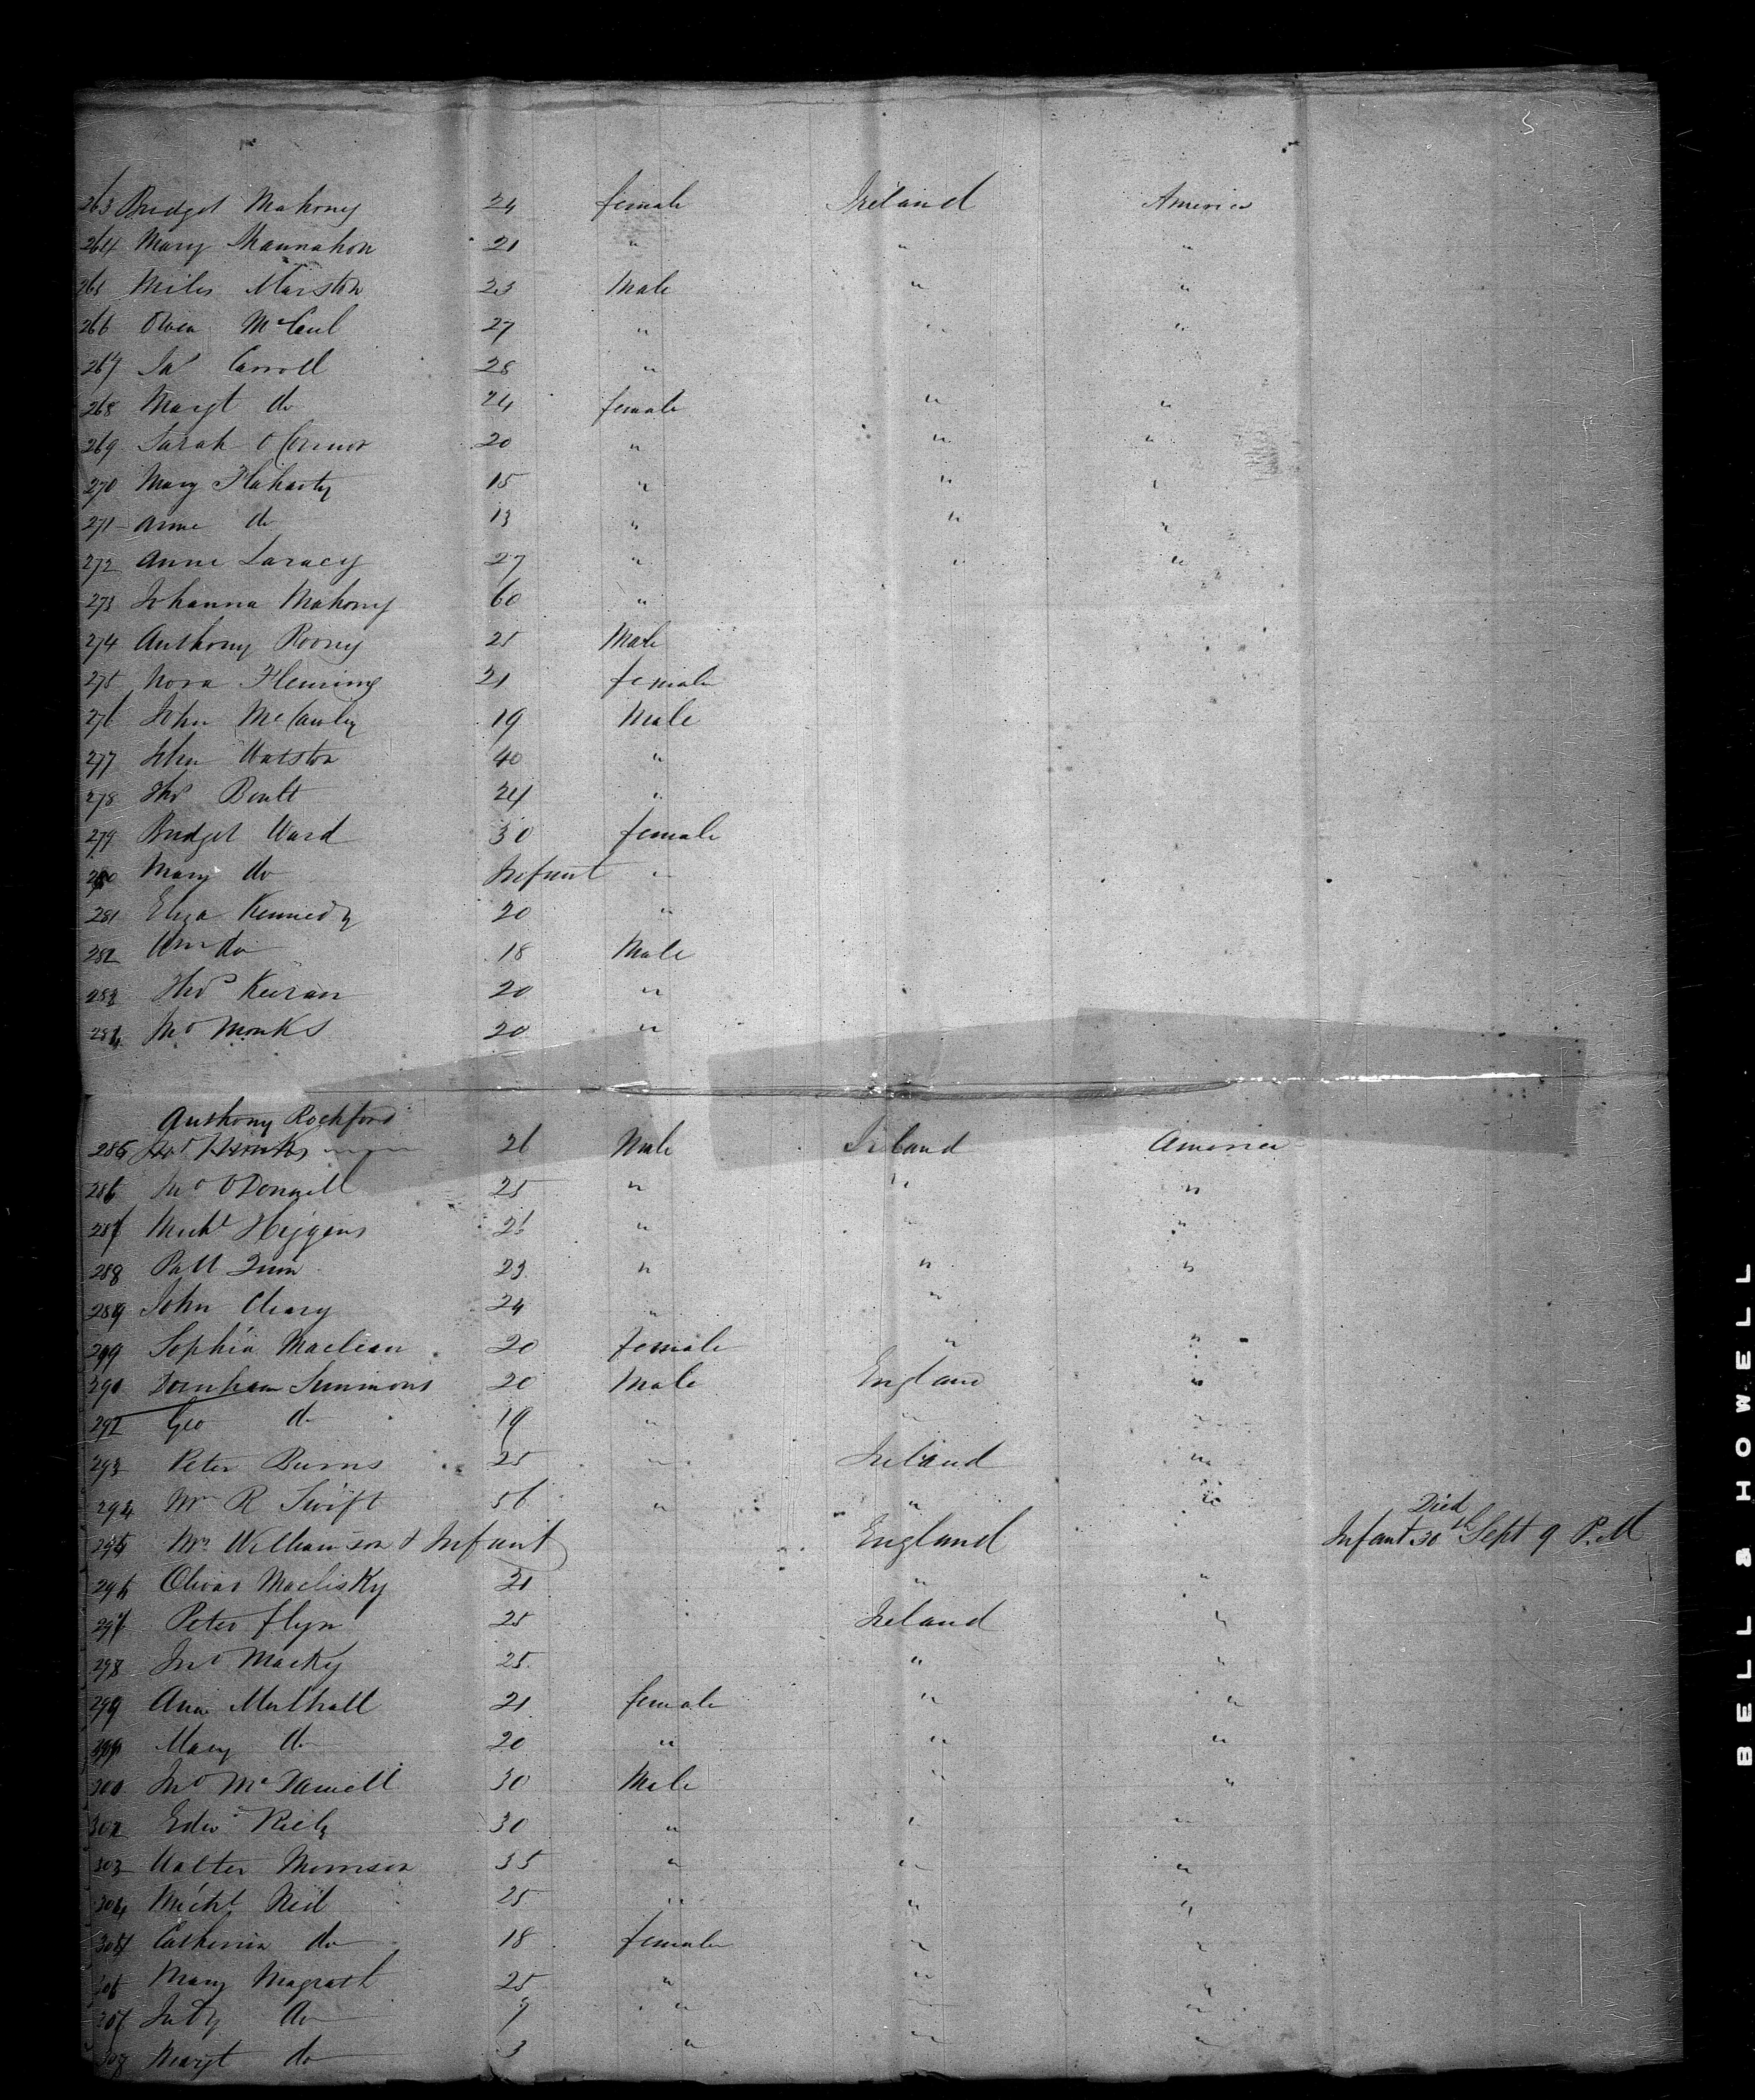 5
263 Bridget Mahony 24 female Ireland America
264 Mary Shannahon 21 " " "
265 Miles Marston 23 Male " "
266 Owen McCaul 27 " " "
267 Jas Carroll 28 "
268 Margt do 24 female " "
269 Sarah O Connor 20 " " "
270 Mary Flaharty 15 " " "
271 Anne do 13 " " "
272 Anne Laracy 27 " " "
273 Johanna Mahony 60 "
274 Anthony Rooney 25 Male
275 Nora Fleming 21 female
276 John McCauley 19 Male
277 John Watston 40 "
278 Thos Boult 24 "
279 Bridget Ward 30 female
280 Mary do Infant "
281 Eliza Kennedy 20 "
282 Wm do 18 Male
283 Thos Keeran 20 "
284 Jno Monks 20 "
Anthony Rochford
285 Jno Monks 26 Male Ireland America
286 Jno O Donnell 25 " " "
287 Michl Higgins 21 " " "
288 Patt Quin 23 " " "
289 John Cleary 24 " "
Sophia Maclean 20 female " "
Simmons 20 Male England "
292 Geo do 19 " " "
293 Peter Burns 25 " Ireland "
294 Mr R Swift 56 " " "
Died
295 Mrs Williamson & Infant England Infant 30th Sept 9 P.M
296 Maclisky 21 " "
297 Peter flyn 25 Ireland "
298 Jno Macky 25 " "
299 Ann Mulhall 21 female " "
Mary do 20 " " "
300 Jno McDaniell 30 Male " "
302 Edwd Riely 30 " " "
303 Walter Morrison 35 " " "
304 Michl Neil 25 " " "
305 Catherin do 18 female " "
306 Mary Magrath 25 " " "
307 Judy do 7 " " "
308 Margt do 3 " " "
BELL & HOWELL